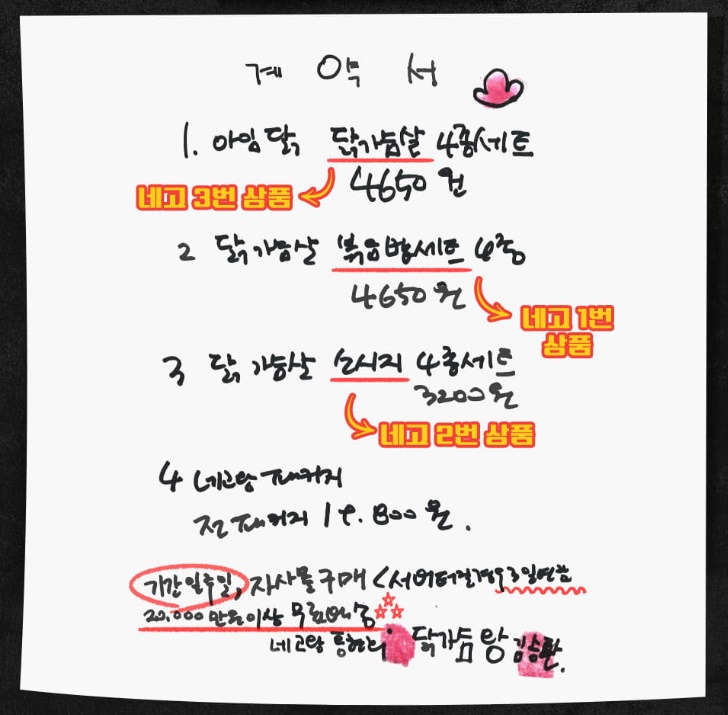 계 약 서
1. 아임닭 닭가슴살 4종세트
4650원
네고 3번 상품
2 닭가슴살 볶음밥세트 4종
4650원
네고 1번
상품
3 닭가슴살 소시지 4종세트
3200원
네고 2번 상품
4 네고왕 패키지
전 패키지 19.800원.
기간 일주일, 자사몰구매 <서버터질경우 3일연장
20,000만원이상 무료배송
네고왕 황현희 닭가슴왕 김승환.